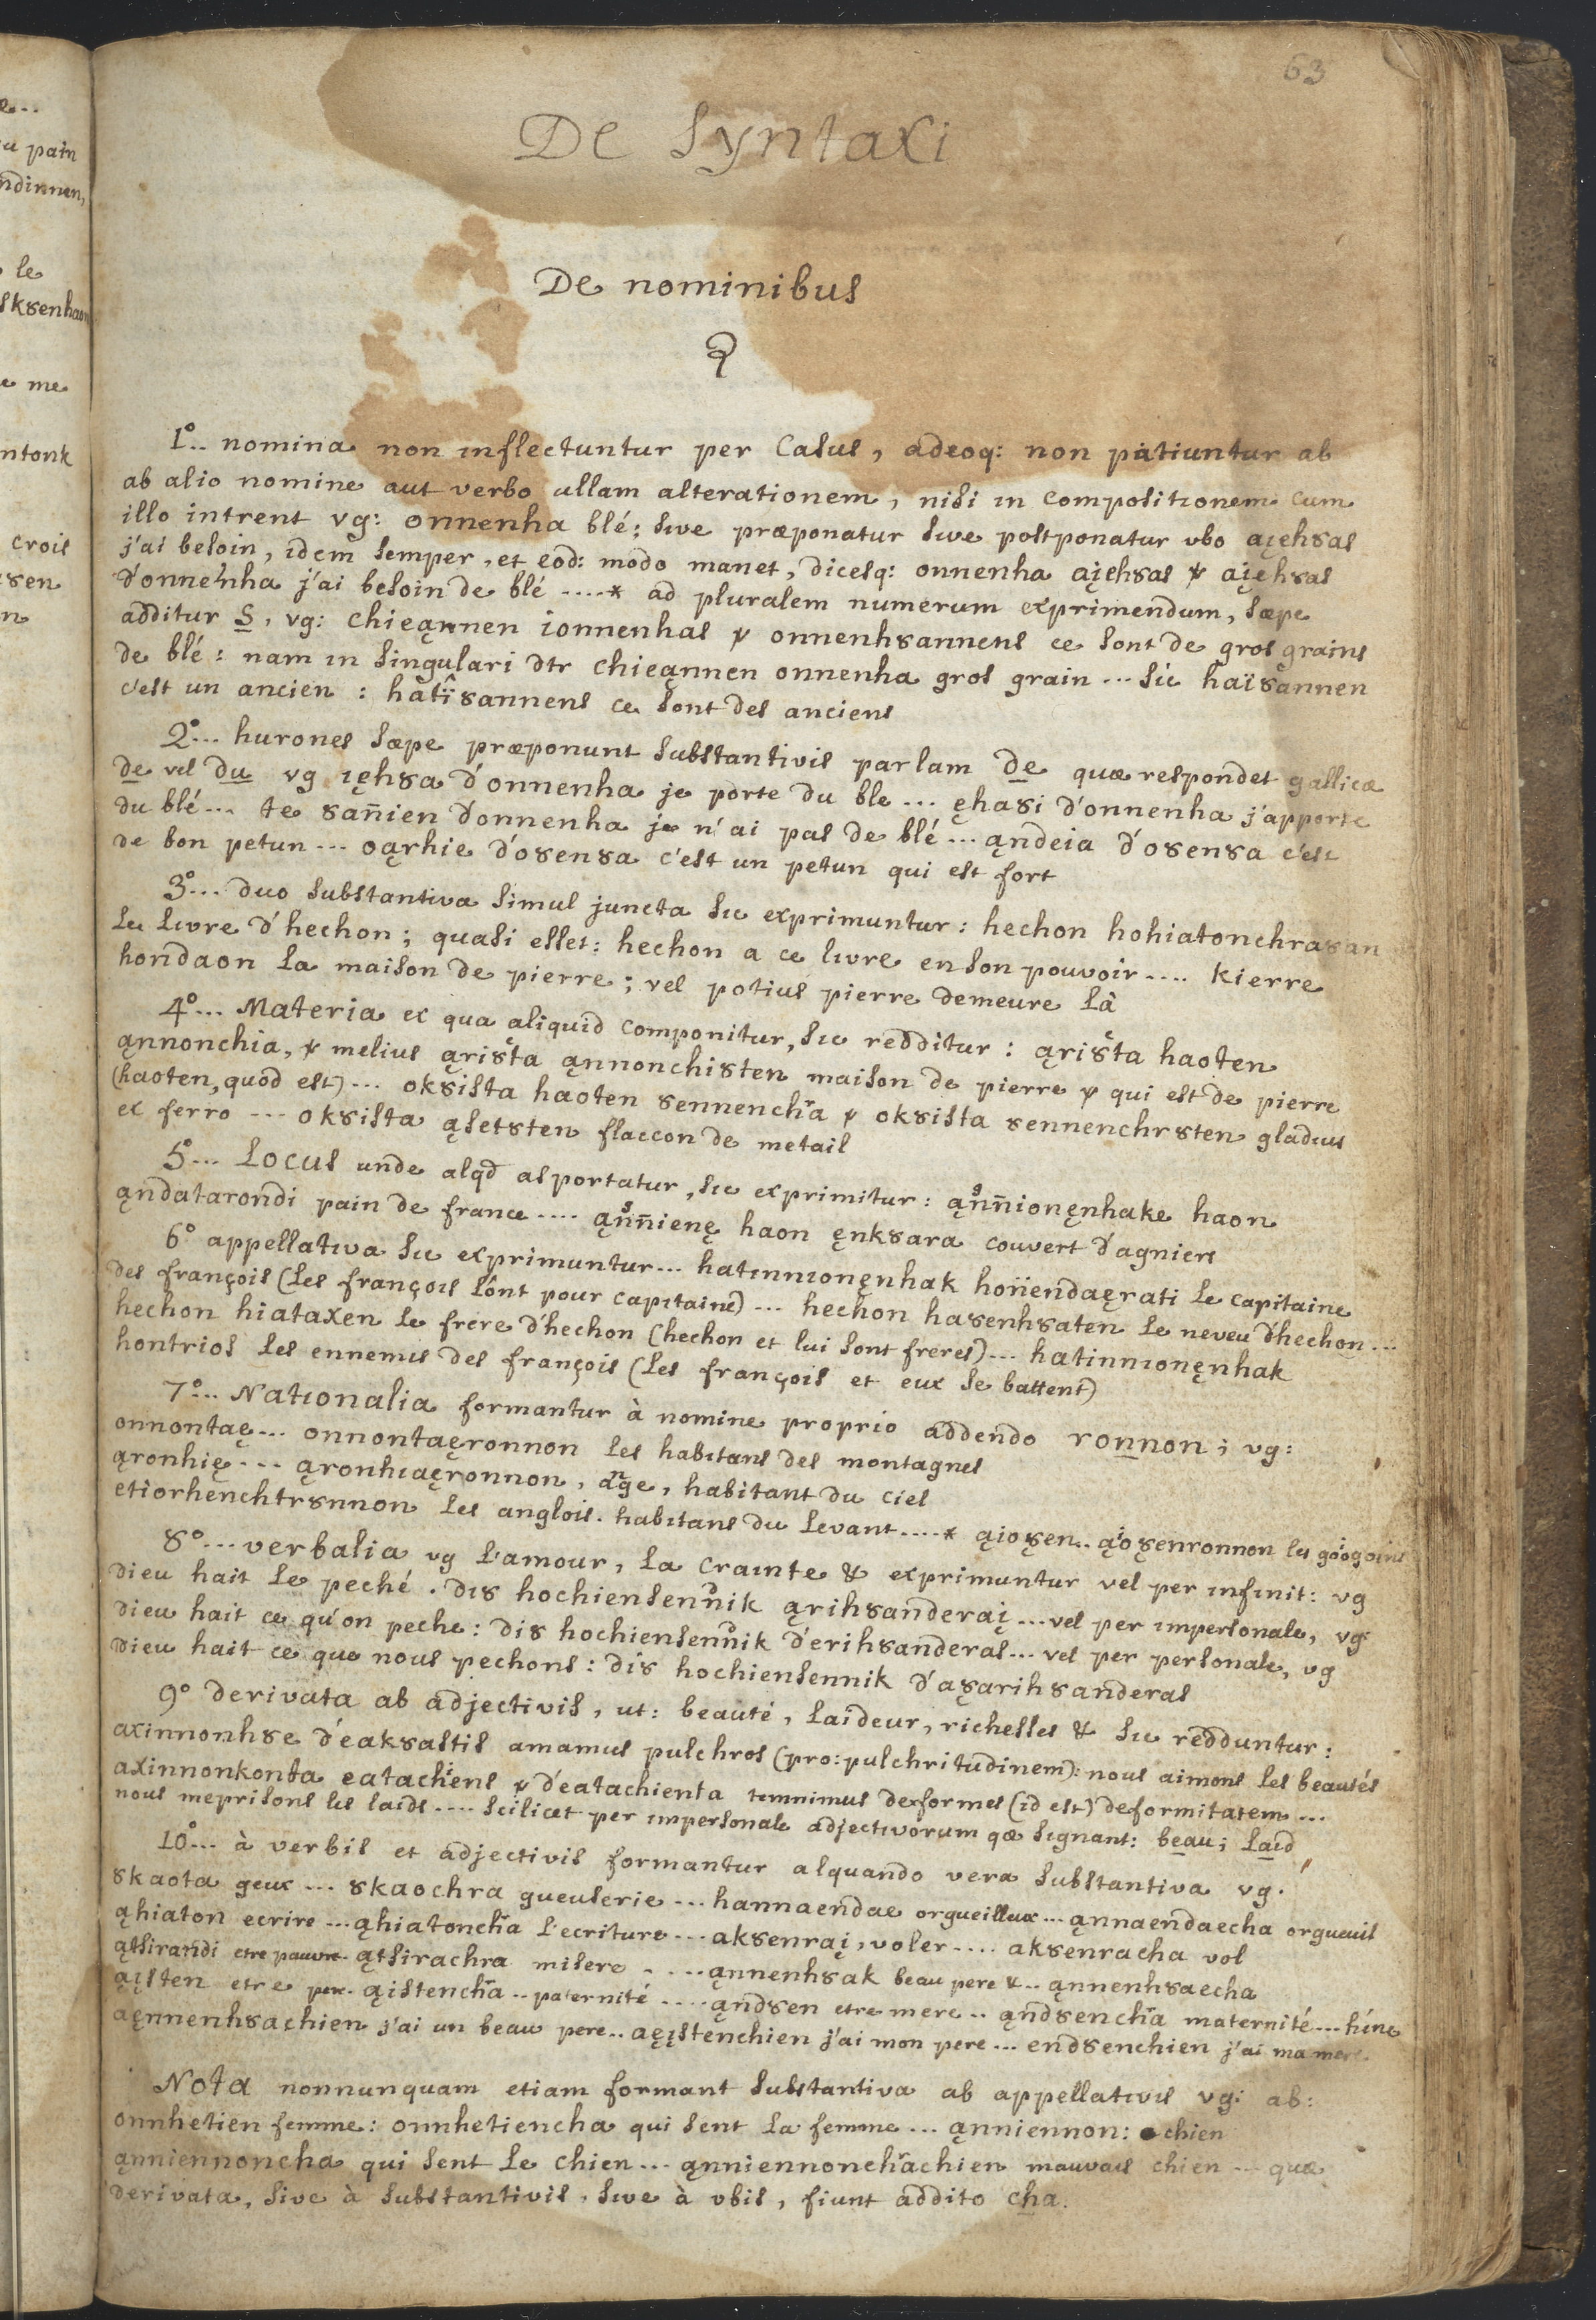 63
De Syntaxi
De nominibus
1°.. nomina non inflectuntur per Casus, adeoq: non patiuntur ab
ab alio nomine aut verbo ullam alterationem, nisi in compositionem cum
illo intrent vg: onnenha blé; sive præponatur sive postponatur vbo ąįehȣas
j'ai besoin, idem semper, et eod: modo manet, dicesq: onnenha ąįehȣas ꝟ ąįehȣas
d'onnenha j'ai besoin de blé ....* ad pluralem numerum exprimendum, sæpe
additur S, vg: chieąnnen ionnenhas ꝟ onnenhȣannens ce sont de gros grains
de blé: nam in singulari dtr chieąnnen onnenha gros grain ... sic haïȣannen
c'est un ancien : hatïȣannens ce sont des anciens
2°... hurones sæpe præponunt substantivis parlam de quæ respondet gallicæ
de vel du vg ıęhȣa d'onnenha je porte du ble ... ęhaȣi d'onnenha j'apporte
du blé... te ȣan̄ien d'onnenha je n'ai pas de blé ... ąndeia d'oȣenȣa c'est
de bon petun ... oąrhie d'oȣenȣa c'est un petun qui est fort
3°... duo substantiva simul juncta sic exprimuntur : hechon hohiatonchraȣan
le livre d'hechon; quasi esset: hechon a ce livre en son pouvoir .... Kierre
hondaon la maison de pierre; vel potius pierre demeure là
4°... Materia ex qua aliquid componitur, sic redditur : ąrista haoten
ąnnonchia, ꝟ melius ąrista ąnnonchisten maison de pierre ꝟ qui est de pierre
(haoten, quod est) ... okȣista haoten ȣennenchra ꝟ okȣista ȣennenchrȣten gladius
ex ferro --- okȣista ąsetȣten flaccon de metail
5°... Locus unde alqd asportatur, sic exprimitur : ąnn̄ionęnhake haon
ąndatarondi pain de france .... ąnn̄ienę haon ęnkȣara couvert d'agniers
6° appellativa sic exprimuntur... hatınnıonęnhak hon̈endaęrati le capitaine
des françois (les françois l'ont pour capitaine) ... hechon haȣenhȣaten le neveu d'hechon ...
hechon hiataxen le frere d'hechon (hechon et lui sont freres) ... hatinnıonęnhak
hontrios les ennemis des françois (les françois et eux se battent)
7°... Nationalia formantur à nomine proprio addendo ronnon; vg:
onnontaę... onnontaęronnon les habitans des montagnes
ąronhię --- ąronhıaęronnon, ange, habitant du ciel
etiorhenchtrȣnnon les anglois. habitans du levant ....* ąioȣen.. ąioȣenronnon les goiogoins
8°...verbalia vg l'amour, la crainte & exprimuntur vel per infinit: vg
dieu hait le peché. diȣ hochiensennik ąrihȣanderaį ...vel per impersonale, vg
dieu hait ce qu'on peche: diȣ hochiensennik d'erihȣanderas... vel per personale, vg
dieu hait ce que nous pechons: diȣ hochiensennik d'aȣarihȣanderas
9° derivata ab adjectivis, ut: beauté, laideur, richesses & sic redduntur:
axinnonhȣe d'eakȣastis amamus pulchros (pro: pulchritudinem): nous aimons les beautés
axinnonkonta eatachiens ꝟ d'eatachienta temnimus deformes (id est) deformitatem ...
nous meprisons les laids .... scilicet per impersonale adjectivorum qæ signant: beau; laid
10°... à verbis et adjectivis formantur alquando vera substantiva vg.
ȣkaota geux ... ȣkaochra gueuserie --- hannaendae orgueilleux ... ąnnaendaecha orgueuil
ąhiaton ecrire ... ąhiatonchra l'ecriture --- akȣenraį, voler .... akȣenracha vol
ątsirandi etre pauvre. ątsirachra misere - ... ąnnenhȣak beau pere &.. ąnnenhȣaecha
ąįsten etre pere. ąistenchra .. paternité .... ąndȣen etre mere .. ąndȣenchra maternité --- hinc
aęnnenhȣachien j'ai un beau pere.. aęįstenchien j'ai mon pere ... endȣenchien j'ai ma mere
Nota nonnunquam etiam formant substantiva ab appellativis vg: ab:
onnhetien femme: onnhetiencha qui sent la femme ... ąnniennon: chien
ąnniennoncha qui sent le chien ... ąnniennonchrachien mauvais chien ... quæ
derivata, sive à substantivis, sive à vbis, fiunt addito cha.